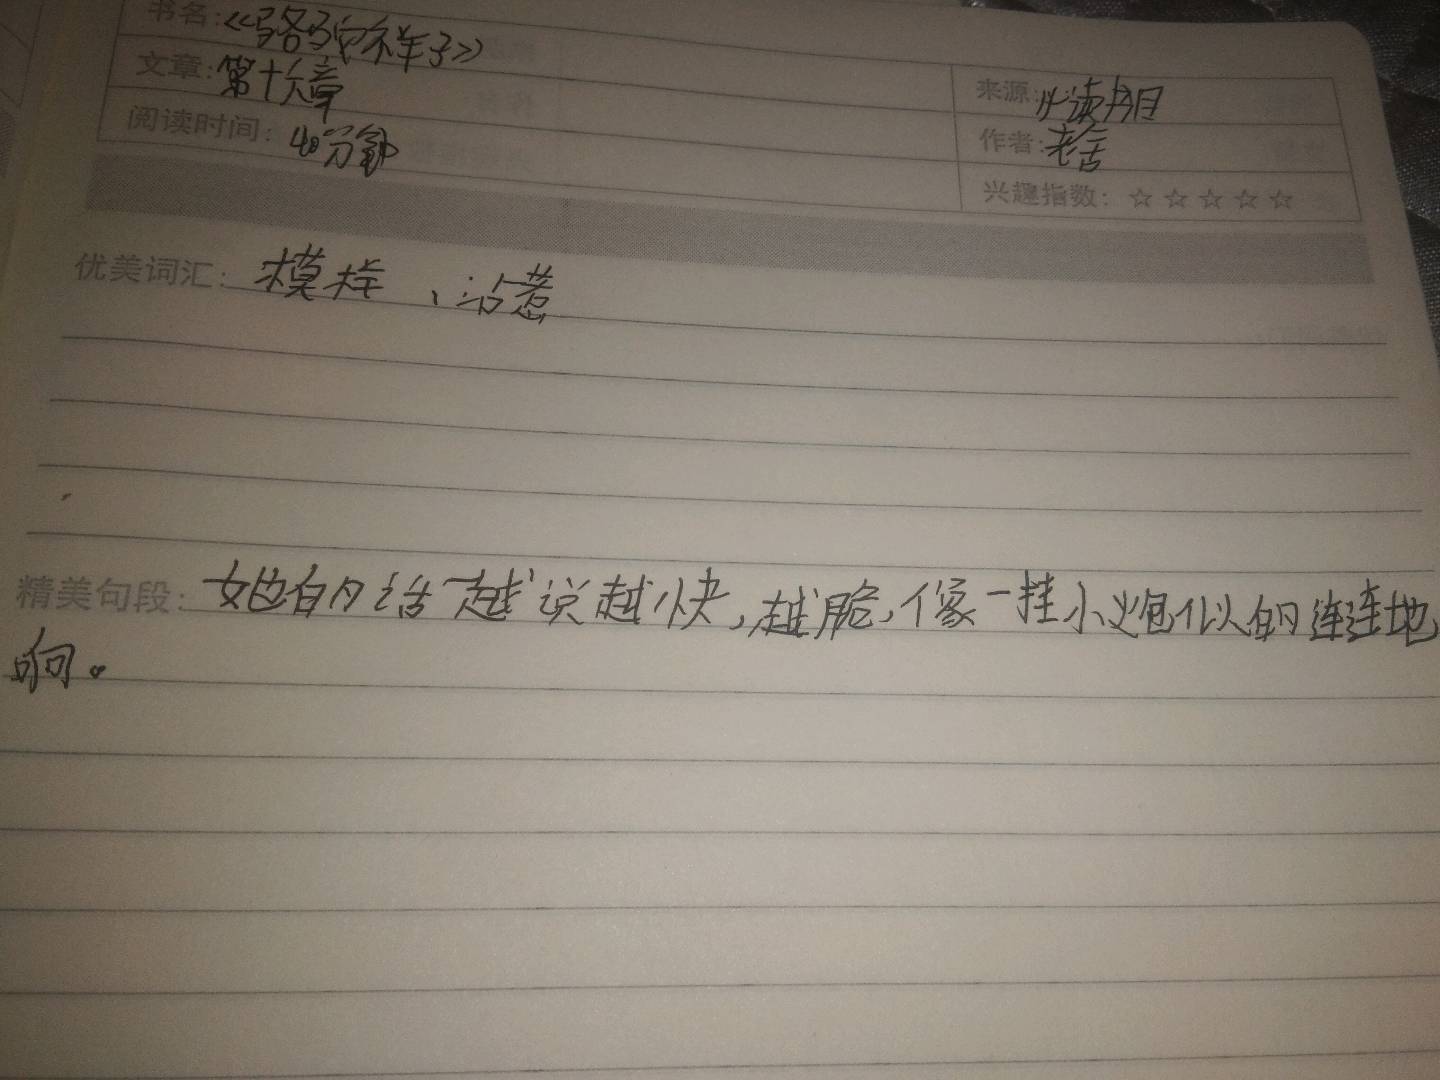 书名:《骆驼祥子》
文章:第十六章
来源:必读书目
阅读时间:40分钟
作者:老舍
兴趣指数:☆☆☆☆☆
优美词汇:模样、沾惹
精美句段:她的话越说越快,越脆,像一挂小炮似的连连地
响。